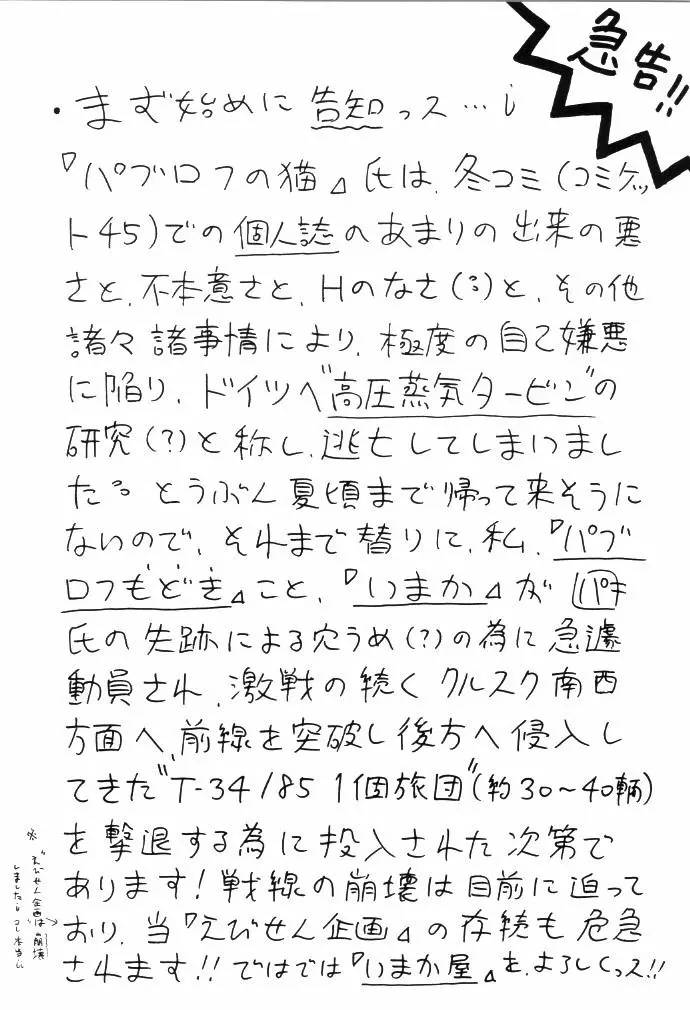 急告!!
・まず始めに告知っス…！
『パブロフの猫』氏は、冬コミ(コミケッ
ト45)での個人誌のあまりの出来の悪
さと、不本意さと、Hのなさ(？)と、その他
諸々諸事情により、極度の自己嫌悪
に陥り、ドイツへ"高圧蒸気タービン"の
研究(?)と称し、逃亡してしまいまし
た。とうぶん夏頃まで帰って来そうに
ないので、それまで替りに、私、『パブ
ロフもどき』こと、『いまか』が パキ
氏の失跡による穴うめ(?)の為に急遽
動員され、激戦の続くクルスク南西
方面へ、前線を突破し後方へ侵入し
てきた"T-34/85 1個旅団"(約30〜40輌)
を撃退する為に投入された次第で
あります！戦線の崩壊は目前に迫って
おり、当『えびせん企画』の存続も危急
されます!!ではでは『いまか屋』を、よろしくっス!!
※"えびせん企画は崩壊
しました！コレ本当に